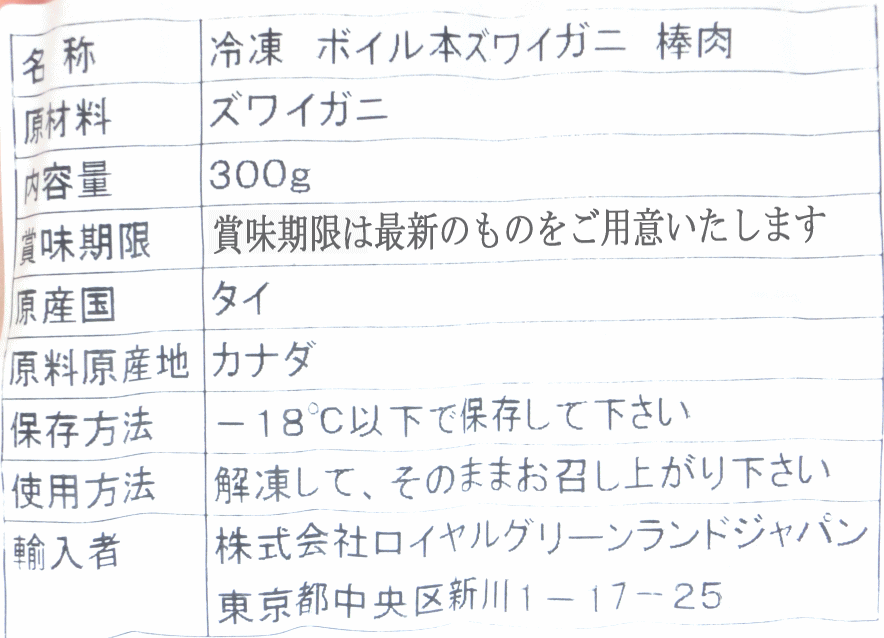 名称 冷凍 ボイル本ズワイガニ 棒肉
原材料 ズワイガニ
内容量 300g
賞味期限 賞味期限は最新のものをご用意いたします
原産国 タイ
原料原産地 カナダ
保存方法 －18℃以下で保存して下さい
使用方法 解凍して、そのままお召し上がり下さい
輸入者 株式会社ロイヤルグリーンランドジャパン
東京都中央区新川1－17－25